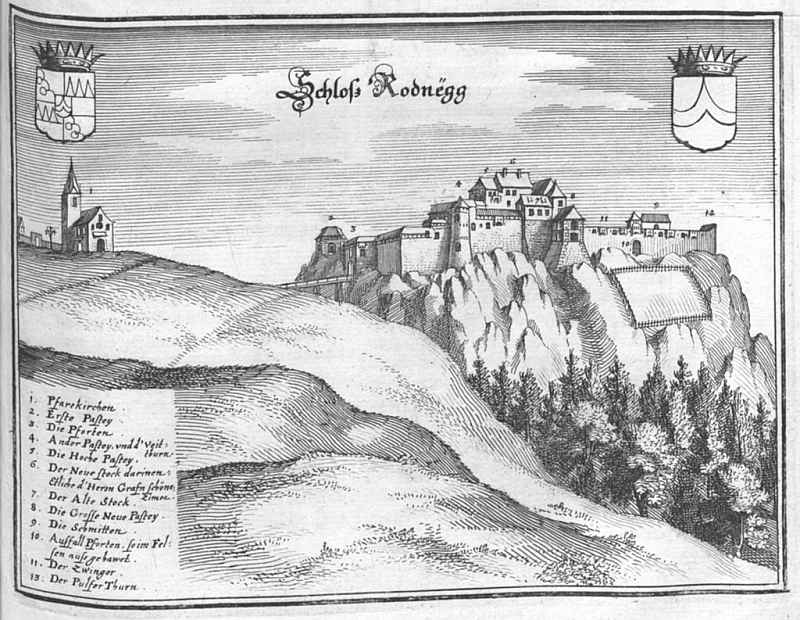 Schloß Rodnëgg
1. Pfarrkirchen.
2. Erste Pastey
3. Die Pforten
4. Ander Pastey, vnd d' Veit: thurn
5. Die Hoche Pastey.
6. Der Neue stock darinen:
Etliche d' Herrn Grafn schöne Zimer.
7. Der Alte Stock.
8. Die Grosse Neue Pastey.
9. Die Schmitten.
10. Außfall Pforten, so im Fel:
sen auß gehawet.
11. Der Zwinger.
12. Der Pulfer Thurn.